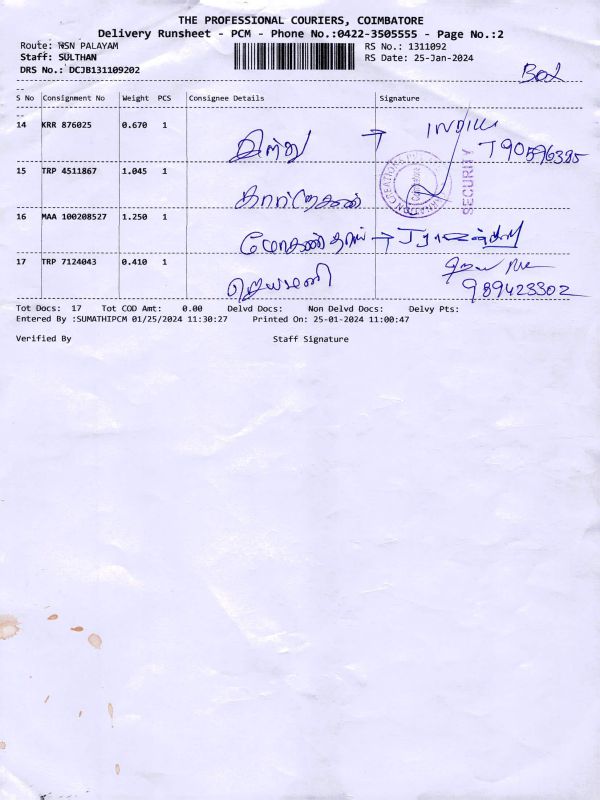 THE PROFESSIONAL COURIERS, COIMBATORE
Delivery Runsheet - PCM - Phone No.:0422-3505555 - Page No.:2
Route: NSN PALAYAM
RS No.: 1311092
Staff: SULTHAN
RS Date: 25-Jan-2024
DRS No.: DCJB131109202
Box
S No Consignment No Weight PCS Consignee Details Signature
14 KRR 876025 0.670 1
இந்து →
15 TRP 4511867 1.045 1
SECURITY
16 MAA 100208527 1.250 1
மோகன்தாஸ் →
17 TRP 7124043 0.410 1
ஜெயமணி
989423302
Tot Docs: 17 Tot COD Amt: 0.00 Delvd Docs: Non Delvd Docs: Delvy Pts:
Entered By :SUMATHIPCM 01/25/2024 11:30:27 Printed On: 25-01-2024 11:00:47
Verified By Staff Signature